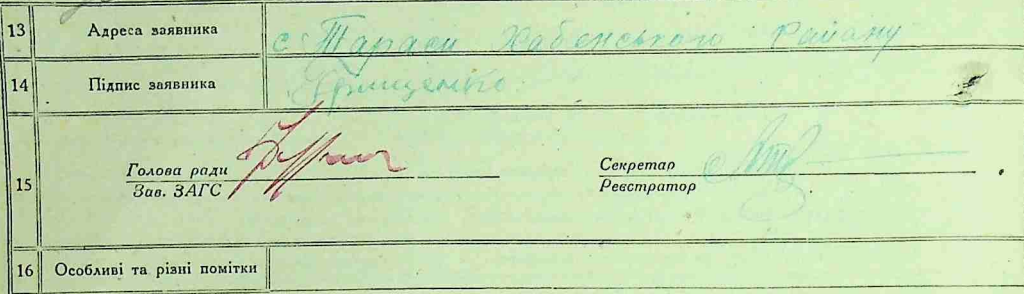 13 Адреса заявника с. Тараси Хабенського району
14 Підпис заявника Грищенко
15 Голова ради
Зав. ЗАГС
Секретар
Реєстратор
16 Особливі та різні помітки